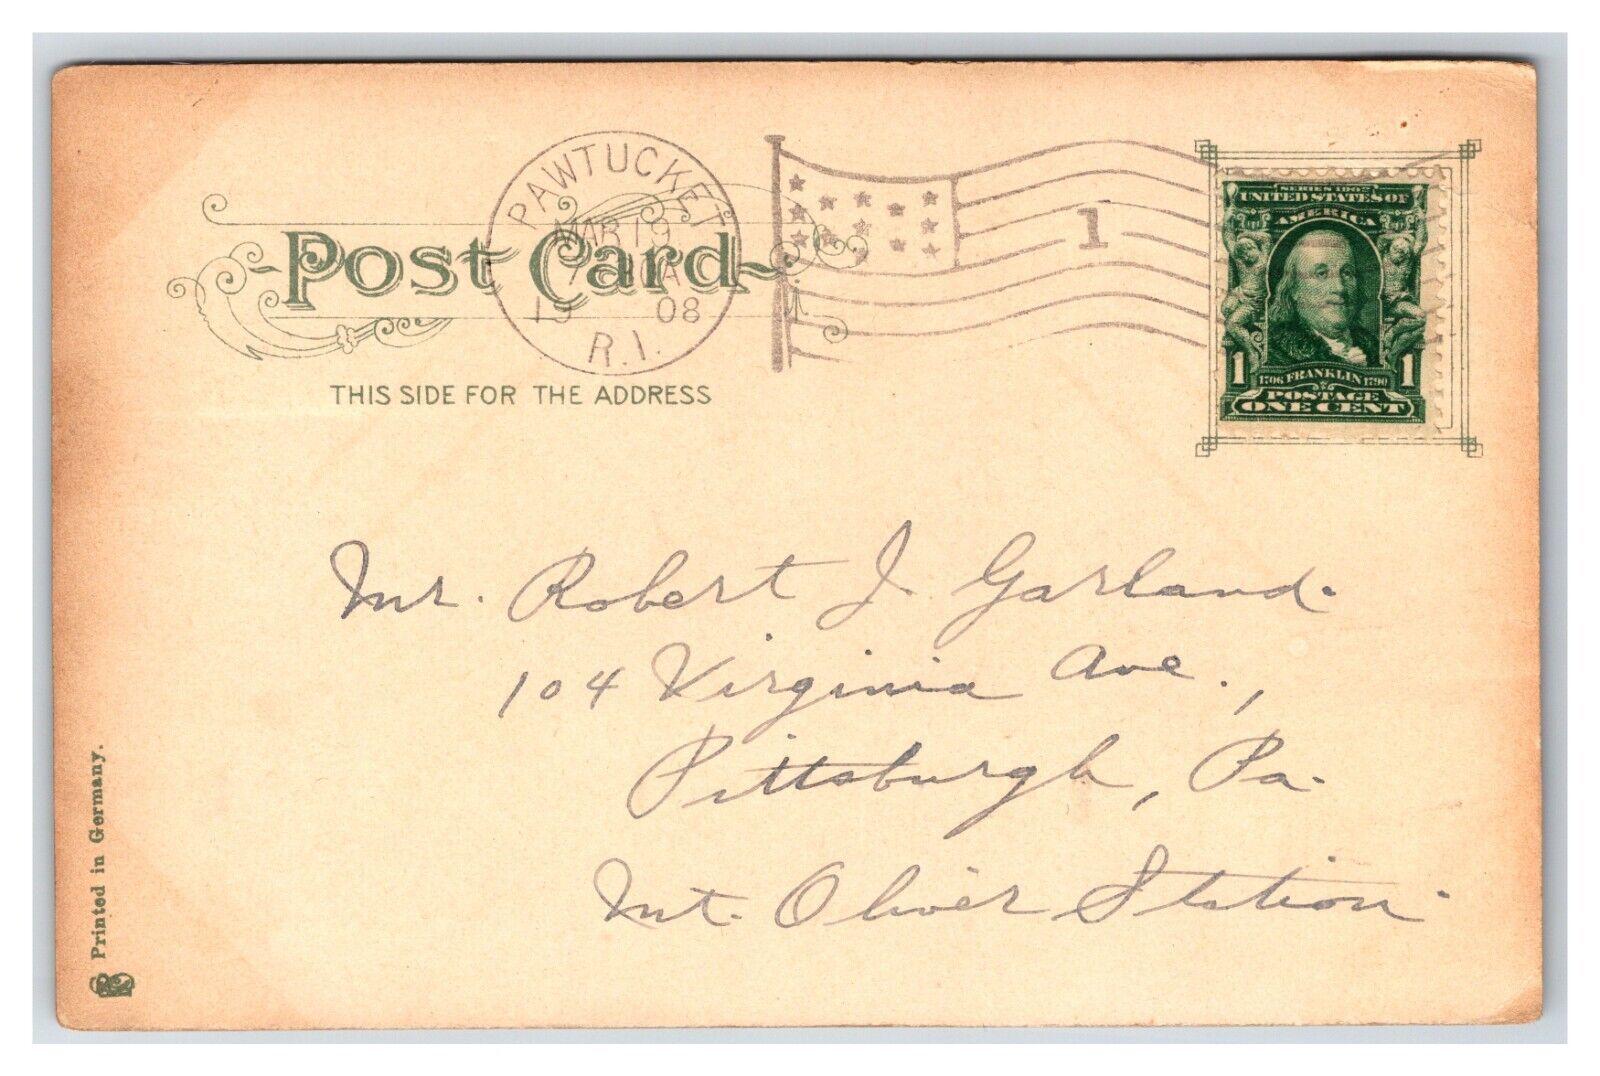 PAWTUCKET
MAR 19
19 08
R.I.
1
POST CARD
THIS SIDE FOR THE ADDRESS
SERIES 1902
UNITED STATES OF
AMERICA
1 1706 FRANKLIN 1790 1
POSTAGE
ONE CENT
Mr. Robert J. Garland.
104 Virginia Ave.,
Pittsburgh, Pa.
Mt. Oliver Station.
Printed in Germany.